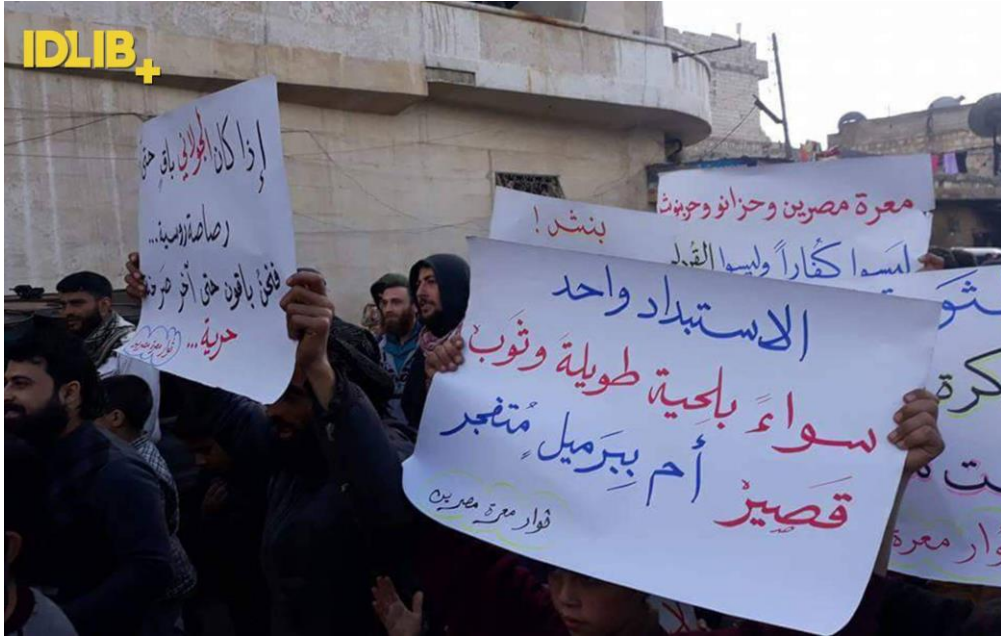 IDLIB+
إذا كان الجولاني باقٍ حتى
رصاصة روسية...
فنحن باقون حتى آخر صرخة
حرية...
بنش !
معرة مصرين وحزانو وحربنوش
ليسوا كفاراً وليسوا
الاستبداد واحد
سواءً بلحية طويلة وثوب
قصير أم ببرميل متفجر
ثوار معرة مصرين
معرة